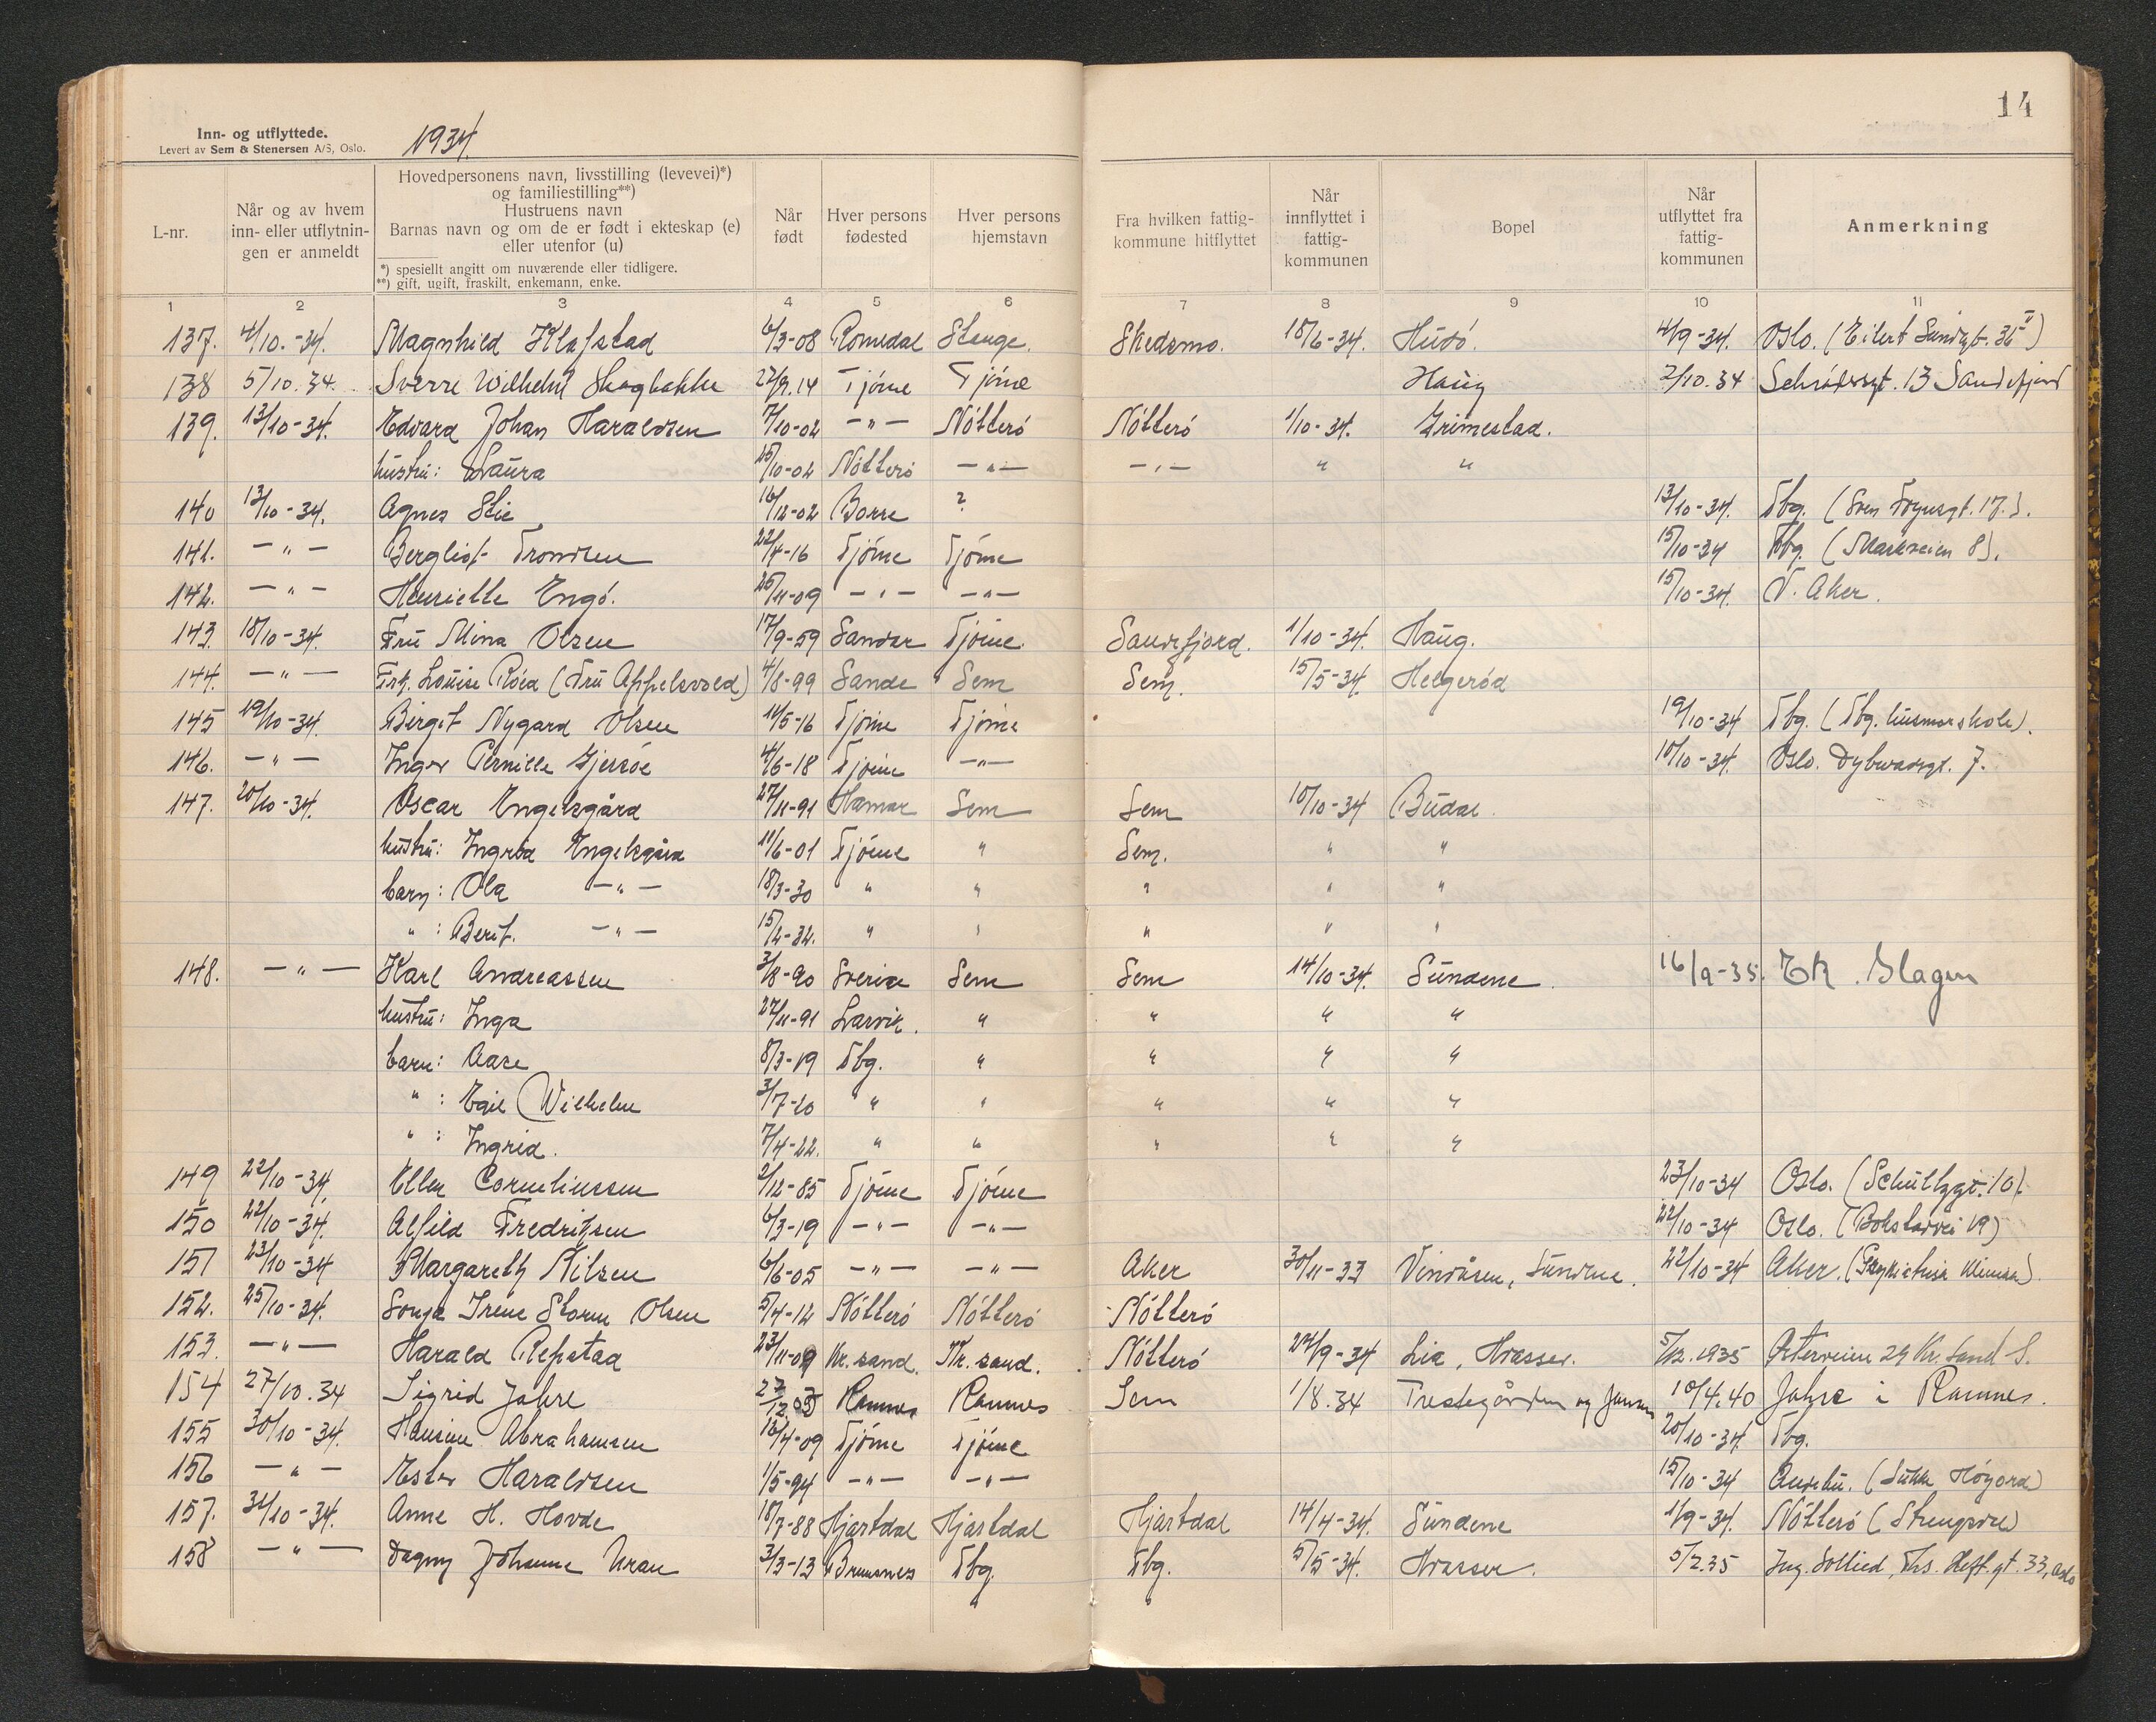 14
Inn- og utflyttede.
Levert av Sem & Stenersen A/S, Oslo.
1934.
L-nr.
Når og av hvem
inn- eller utflytnin-
gen er anmeldt
Hovedpersonens navn, livsstilling (levevei)*)
og familiestilling**)
Hustruens navn
Barnas navn og om de er født i ekteskap (e)
eller utenfor (u)
*) spesiellt angitt om nuværende eller tidligere.
**) gift, ugift, fraskilt, enkemann, enke.
Når
født
Hver persons
fødested
Hver persons
hjemstavn
Fra hvilken fattig-
kommune hitflyttet
Når
innflyttet i
fattig-
kommunen
Bopel
Når
utflyttet fra
fattig-
kommunen
Anmerkning
1 2 3 4 5 6 7 8 9 10 11
137. 4/10.-34. Magnhild Klafstad 6/3-08 Romedal Stange. Skedsmo. 18/6-34. Husö. 4/9-34. Oslo. (Eilert Sundtgt. 36 V)
138 5/10.34. Sverre Wilhelm Skogbakke 22/9.14 Tjöme Tjöme Haug 2/10.34 13 Sandefjord
139. 13/10-34. Edvard Johan Haraldsen 7/10-02 -"- Nötterö Nötterö 1/10-34. Grimestad.
hustru: Laura 25/10-02 Nötterö -"- -"- " "
140 13/10-34. Agnes Lie 16/12-02 Borre ? 13/10-34. Tbg. (Sven Foynsgt. 17.).
141. -"- Bergliot Trondsen 22/4-16 Tjöme Tjöme 15/10-34 Tbg. (Markveien 8).
142. -"- Henriette Engö. 25/11-09 -"- -"- 15/10-34. V. Aker.
143. 18/10-34. Fru Mina Olsen 17/9-59 Sandar Tjöme Sandefjord. 1/10-34. Haug.
144. -"- Frk. Louise Röed (Fru Appelsvold) 4/8-99 Sande Sem Sem. 15/5-34. Helgeröd
145 19/10-34. Birgit Nygard Olsen 11/5-16 Tjöme Tjöme 19/10-34 Tbg. (Tbg. husmorskole).
146. -"- Inger Pernille Gjersöe 4/6-18 Tjöme -"- 18/10-34. Oslo. Dybwadsgt. 7.
147. 20/10-34. Oscar Engelsgård 27/11-91 Hamar Sem Sem 10/10-34 Budal.
hustru: Ingrid Engelsgård 11/6-01 Tjöme " Sem. " "
barn: Ola -"- 18/3-30 " " " " "
": Berit. -"- 15/2-32. " " " " "
148. -"- Karl Andreassen 3/8-90 Sverige Sem Sem 14/10-34. Sundene. 16/9-35. Ek. Slagen
hustru: Inga 27/11-91 Larvik. " " " "
barn: Aase 8/3-19 Tbg. " " " "
": Egil Wilhelm 3/7-20 " " " " "
": Ingrid. 7/4-22. " " " " "
149 22/10-34. Ellen Corneliussen 2/12-85 Tjöme Tjöme 23/10-34 Oslo. (Schultzgt. 10).
150 22/10-34. Alfild Fredriksen 6/3-19 -"- -"- 22/10-34 Oslo. (Bokstadvei 19)
151 23/10-34 Margareth Nilsen 6/6-05 -"- -"- Aker 30/11-33 Vindåsen, Sundene. 22/10-34 Aker.
152. 25/10-34. Sonja Irene Storm Olsen 5/4-12 Nötterö Nötterö Nötterö
153. -"- Harald Repstad 23/11-09 Kr.sand. Kr.sand. Nötterö 24/9-34 Lia, Hvasser. 5/12.1935 29 Kr. sand S.
154 27/10.34 Sigrid Jahre 27/12.03 Ramnes Ramnes Sem 1/8.34 10/4.40 Jahre i Ramnes.
155 30/10-34. Hansine Abrahamsen 16/4-09 Tjöme Tjöme 20/10-34. Tbg.
156 -"- Ester Haraldsen 1/5-94 -"- -"- 15/10-34 Andebu.
157. 31/10-34. Anne H. Hovde 18/7-88 Hjartdal Hjartdal Hjartdal 14/4-34. Sundene 1/9-34. Nötterö
158 -"- Dagny Johanne Uran 3/3-13 Tbg. Tbg. 5/5-34. Hvasser. 5/2.35 Ing. Sollied, Ths. Heft. gt. 33, Oslo